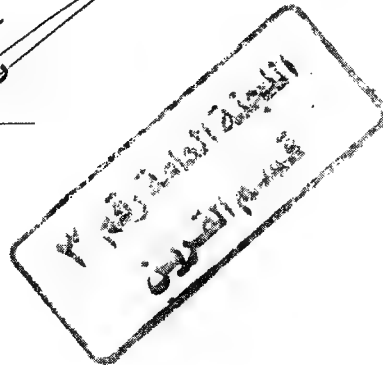 اللجنة العامة رقم ٢
قسم القرين